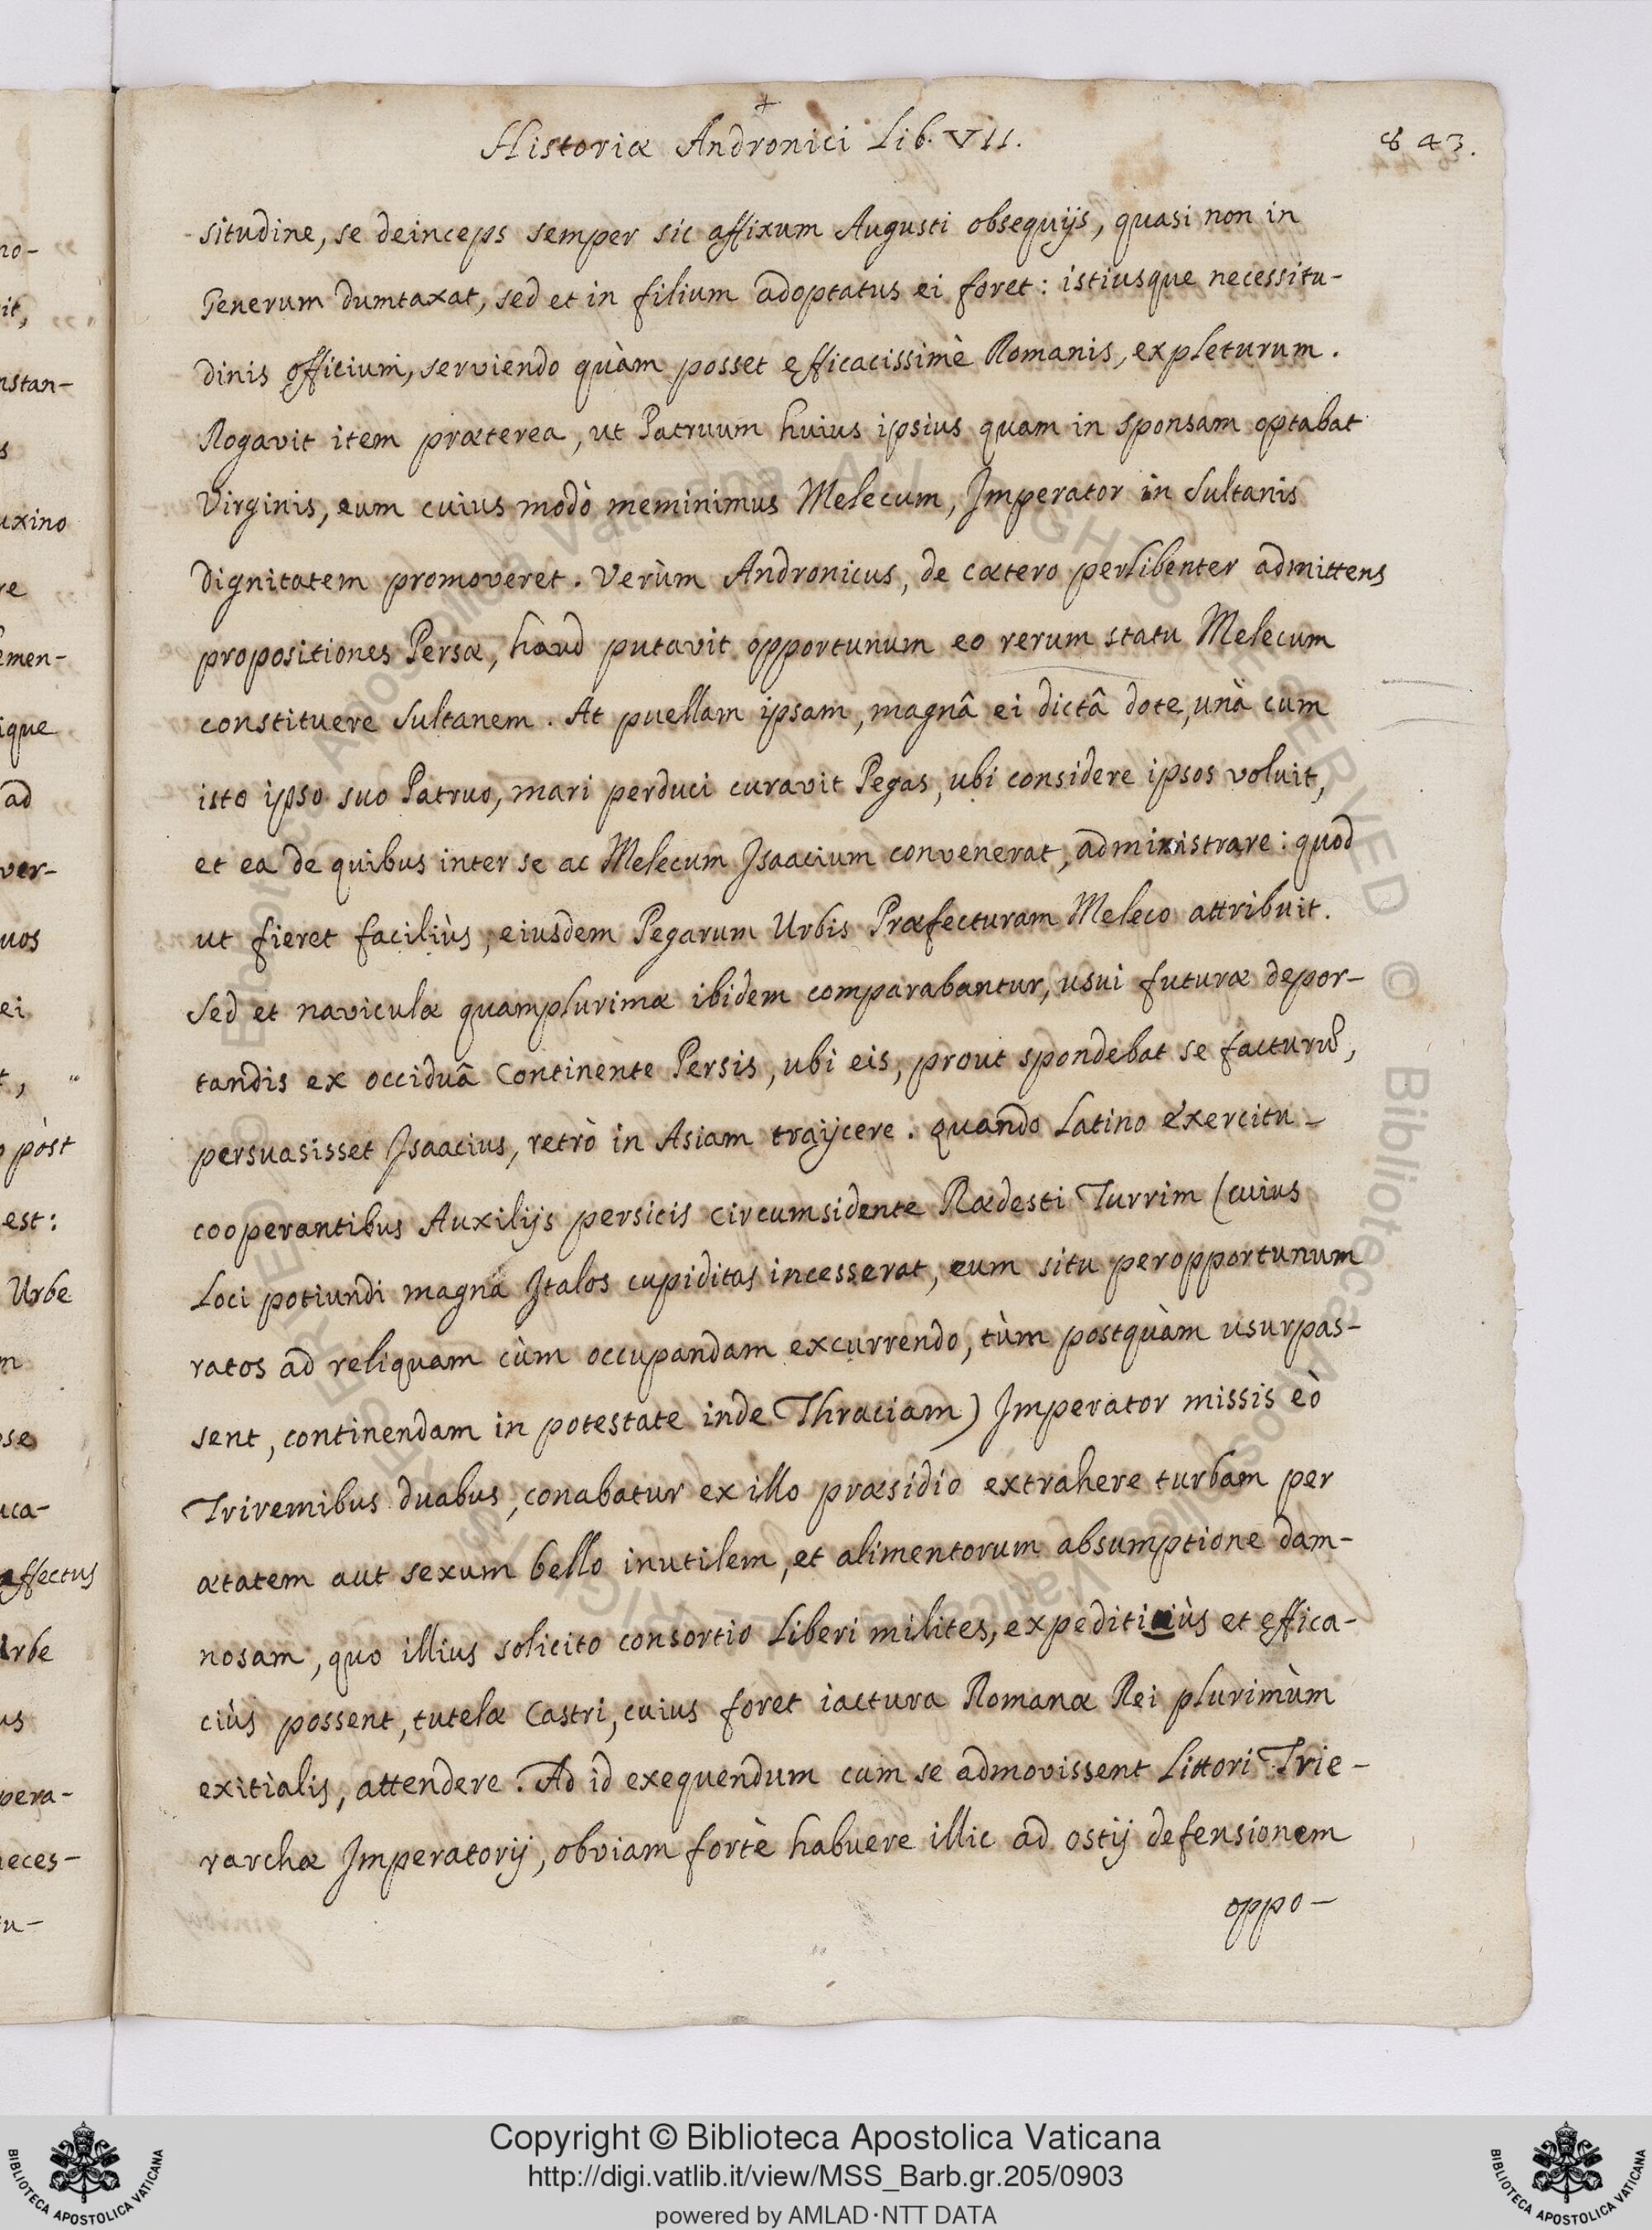 +
Historiæ Andronici Lib. VII.
843.
situdine, se deinceps semper sic affixum Augusti obsequijs, quasi non in
Generum dumtaxat, sed et in filium adoptatus ei foret: istiusque necessitu-
dinis officium, serviendo quàm posset efficacissimè Romanis, expleturum.
Rogavit item præterea, ut Patruum huius ipsius quam in sponsam optabat
Virginis, eum cuius modò meminimus Melecum, Imperator in Sultanis
dignitatem promoveret. Verùm Andronicus, de cætero perlibenter admittens
propositiones Persæ, haud putavit opportunum eo rerum statu Melecum
constituere Sultanem. At puellam ipsam, magnâ ei dictâ dote, unà cum
isto ipso suo Patruo, mari perduci curavit Pegas, ubi considere ipsos voluit,
et ea de quibus inter se ac Melecum Isaacium convenerat, administrare: quod
ut fieret faciliùs, eiusdem Pegarum Urbis Præfecturam Meleco attribuit.
Sed et naviculæ quamplurimæ ibidem comparabantur, usui futuræ depor-
tandis ex occiduâ Continente Persis, ubi eis, prout spondebat se facturũ,
persuasisset Isaacius, retrò in Asiam traijcere. quando Latino exercitu
cooperantibus Auxilijs persicis circumsidente Rædesti Turrim (cuius
Loci potiundi magna Italos cupiditas incesserat, eum situ peropportunum
ratos ad reliquam cùm occupandam excurrendo, tùm postquàm usurpas-
sent, continendam in potestate inde Thraciam) Imperator missis eò
Triremibus duabus, conabatur ex illo præsidio extrahere turbam per
ætatem aut sexum bello inutilem, et alimentorum absumptione dam-
nosam, quo illius solicito consortio Liberi milites, expeditiùs et effica-
ciùs possent, tutelæ Castri, cuius foret iactura Romanæ Rei plurimùm
exitialis, attendere. Ad id exequendum cum se admovissent Littori Trie-
rarchæ Imperatorij, obviam fortè habuere illic ad ostij defensionem
oppo-
no-
it,
nstan-
s
uxino
re
emen-
ique
ad
ver-
uos
ei
t,
o pòst
est:
Urbe
m
ose
uca-
effectus
Urbe
us
pera-
neces-
tu-
Copyright © Biblioteca Apostolica Vaticana
http://digi.vatlib.it/view/MSS_Barb.gr.205/0903
powered by AMLAD·NTT DATA
BIBLIOTECA APOSTOLICA VATICANA
BIBLIOTECA APOSTOLICA VATICANA